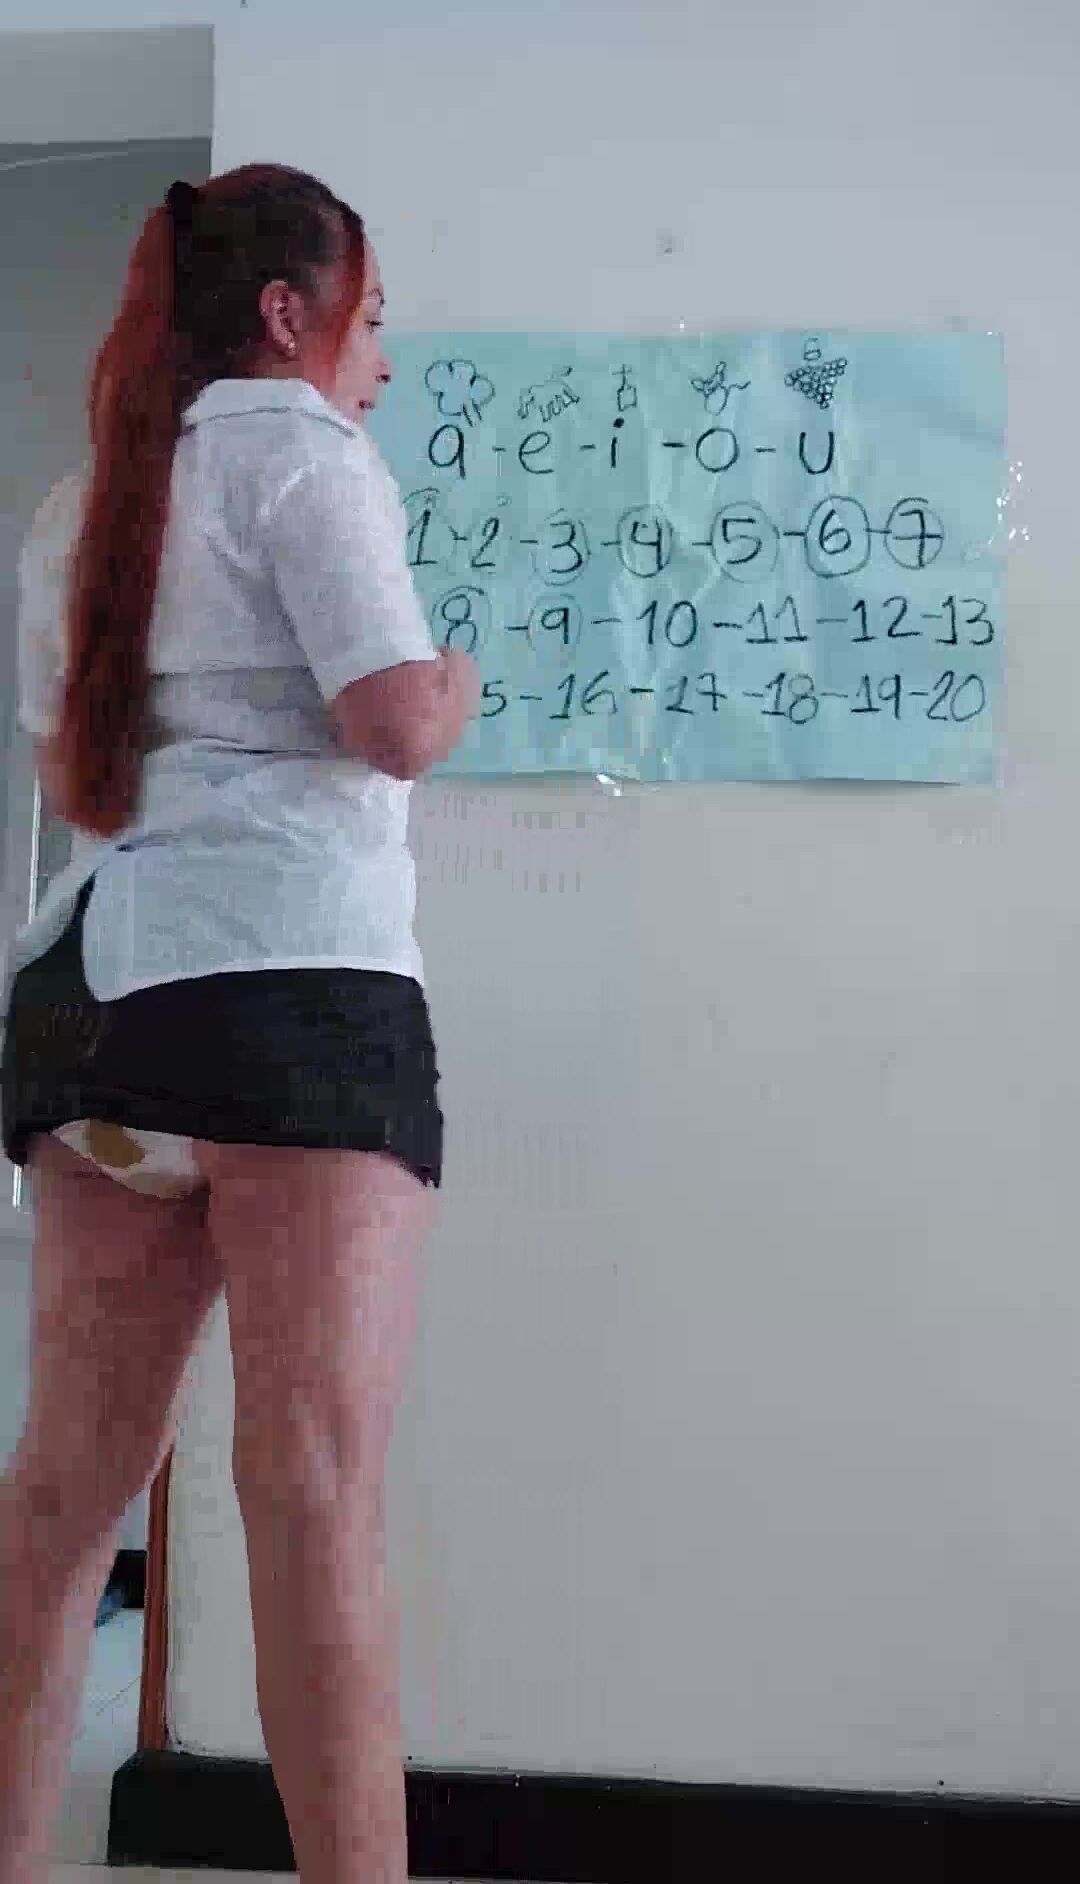 a - e - i - o - u
1 - 2 - 3 - 4 - 5 - 6 - 7
8 - 9 - 10 - 11 - 12 - 13
5 - 16 - 17 - 18 - 19 - 20